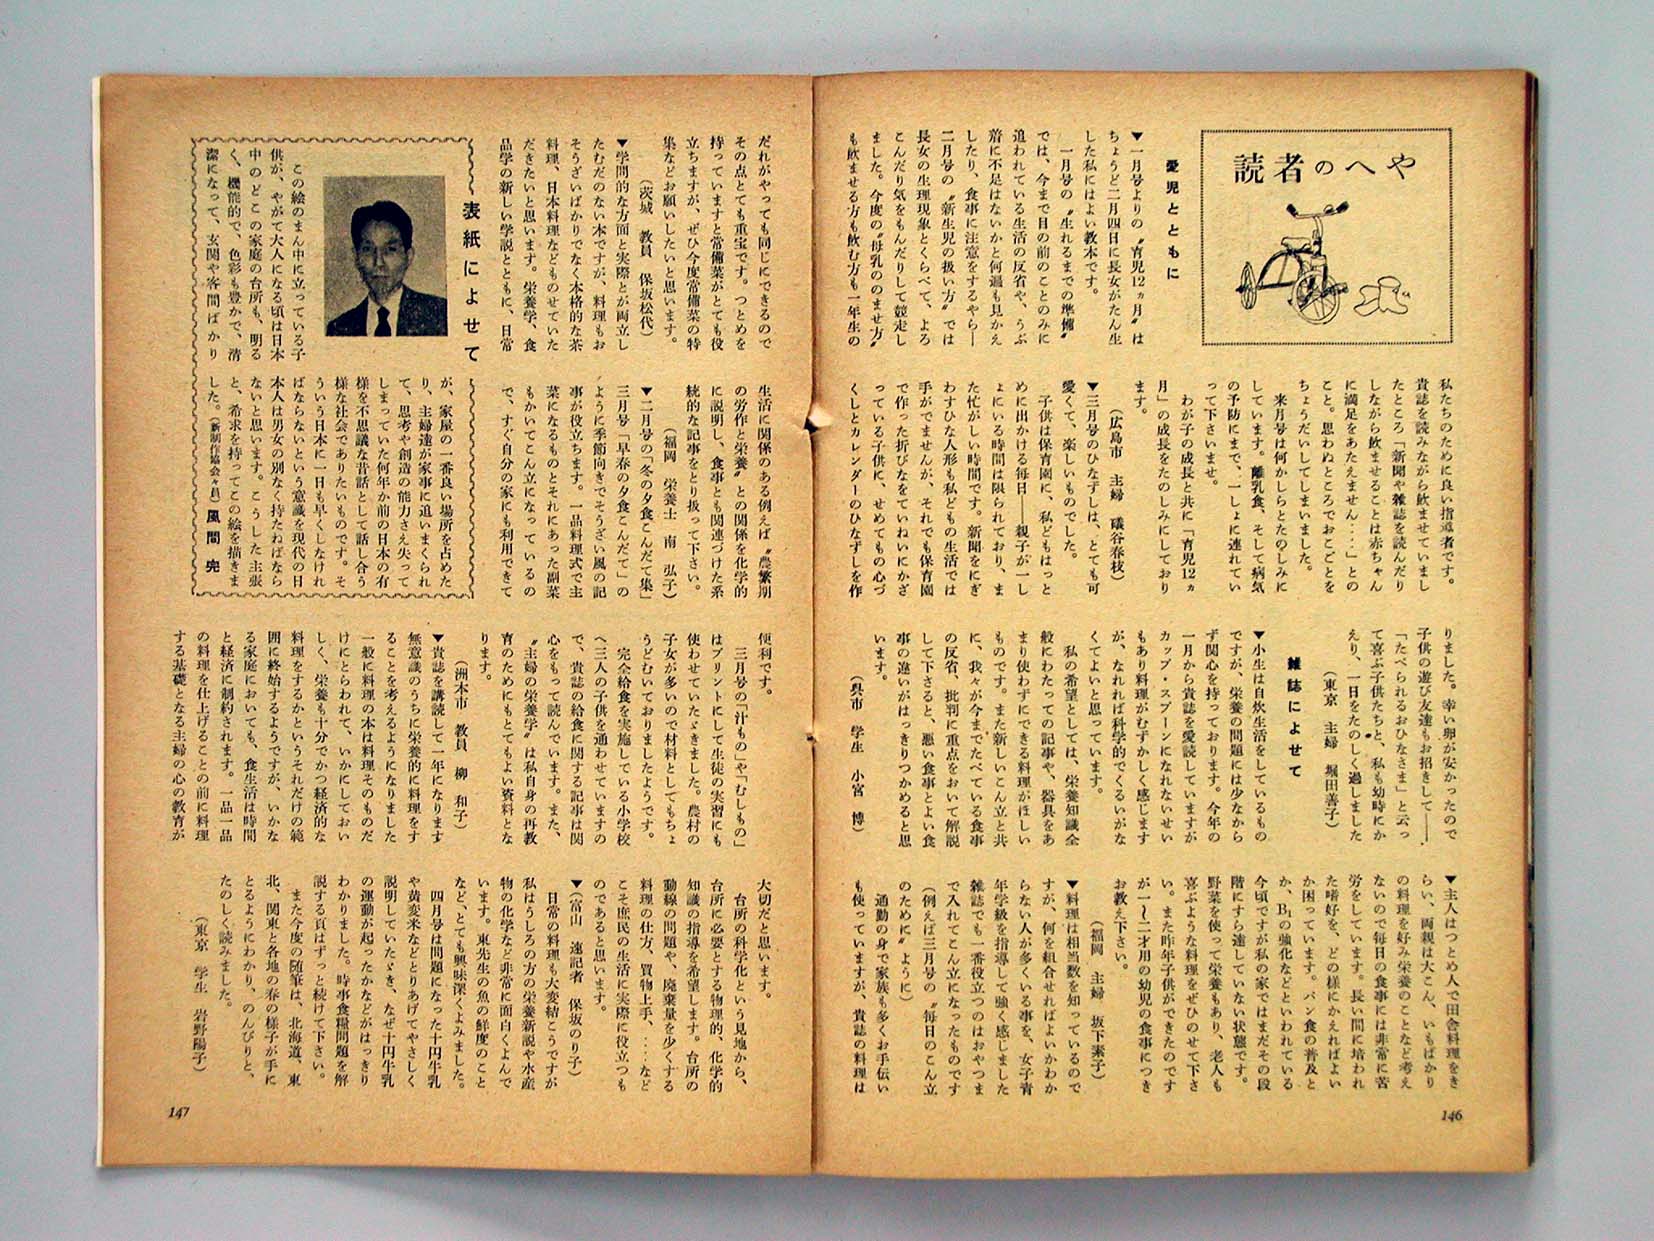 読者のへや
愛児とともに
▼一月号よりの〝育児12ヵ月〟は
ちょうど二月四日に長女がたん生
した私にはよい教本です。
一月号の〝生れるまでの準備〟
では、今まで目の前のことのみに
追われている生活の反省や、うぶ
着に不足はないかと何遍も見かえ
したり、食事に注意をするやら―
二月号の〝新生児の扱い方〟では
長女の生理現象とくらべて、よろ
こんだり気をもんだりして競走し
ました。今度の〝母乳ののませ方〟
も飲ませる方も飲む方も一年生の
私たちのために良い指導者です。
貴誌を読みながら飲ませていまし
たところ「新聞や雑誌を読んだり
しながら飲ませることは赤ちゃん
に満足をあたえません‥‥」との
こと。思わぬところでおこごとを
ちょうだいしてしまいました。
来月号は何かしらとたのしみに
しています。離乳食、そして病気
の予防にまで、一しょに連れてい
って下さいませ。
わが子の成長と共に「育児12ヵ
月」の成長をたのしみにしており
ます。
（広島市 主婦 礒谷春枝）
▼三月号のひなずしは、とても可
愛くて、楽しいものでした。
子供は保育園に、私どもはっと
めに出かける毎日――親子が一し
ょにいる時間は限られており、ま
た忙がしい時間です。新聞をにぎ
わすひな人形も私どもの生活では
手がでませんが、それでも保育園
で作った折びなをていねいにかざ
っている子供に、せめてもの心づ
くしとカレンダーのひなずしを作
りました。幸い卵が安かったので
子供の遊び友達もお招きして――
「たべられるおひなさま」と云っ
て喜ぶ子供たちと、私も幼時にか
えり、一日をたのしく過しました
（東京 主婦 堀田善子）
雑誌によせて
▼小生は自炊生活をしているもの
ですが、栄養の問題には少なから
ず関心を持っております。今年の
一月から貴誌を愛読していますが
カップ・スプーンになれないせい
もあり料理がむずかしく感じます
が、なれれば科学的でくるいがな
くてよいと思っています。
私の希望としては、栄養知識全
般にわたっての記事や、器具をあ
まり使わずにできる料理がほしい
ものです。また新しいこん立と共
に、我々が今までたべている食事
の反省、批判に重点をおいて解説
して下さると、悪い食事とよい食
事の違いがはっきりつかめると思
います。
（呉市 学生 小宮 博）
▼主人はつとめ人で田舎料理をき
らい、両親は大こん、いもばかり
の料理を好み栄養のことなど考え
ないので毎日の食事には非常に苦
労をしています。長い間に培われ
た嗜好を、どの様にかえればよい
か困っています。パン食の普及と
か、B₁の強化などといわれている
今頃ですが私の家ではまだその段
階にすら達していない状態です。
野菜を使って栄養もあり、老人も
喜ぶような料理をぜひのせて下さ
い。また昨年子様ができたのです
が一～二才用の幼児の食事につき
お教え下さい。
（福岡 主婦 坂下素子）
▼料理は相当数を知っているので
すが、何を組合せればよいかわか
らない人が多くいる事を、女子青
年学級を指導して強く感じました
雑誌でも一番役立つのはおやつま
で入れてこん立になったものです
（例えば三月号の〝毎日のこん立
のために〟ように）
通勤の身で家族も多くお手伝い
も使っていますが、貴誌の料理は
146
だれがやっても同じにできるので
その点とても重宝です。つとめを
持っていますと常備菜がとても役
立ちますが、ぜひ今度常備菜の特
集などお願いしたいと思います。
（茨城 教員 保坂松代）
▼学問的な方面と実際とが両立し
たむだのない本ですが、料理もお
そうざいばかりでなく本格的な茶
料理、日本料理などものせていた
だきたいと思います。栄養学、食
品学の新しい学説とともに、日常
生活に関係のある例えば〝農繁期
の労作と栄養〟との関係を化学的
に説明し、食事とも関連づけた系
統的な記事をとり扱って下さい。
（福岡 栄養士 南 弘子）
▼二月号の「冬の夕食こんだて集」
三月号「早春の夕食こんだて」の
ように季節向きでそうざい風の記
事が役立ちます。一品料理式で主
菜になるものとそれにあった副菜
もかいてこん立になっているの
で、すぐ自分の家にも利用できて
便利です。
三月号の「汁もの」や「むしもの」
はプリントにして生徒の実習にも
使わせていたゞきました。農村の
子女が多いので材料としてもちょ
うどむいておりましたようです。
完全給食を実施している小学校
へ三人の子供を通わせていますの
で、貴誌の給食に関する記事は関
心をもって読んでいます。また、
〝主婦の栄養学〟は私自身の再教
育のためにもとてもよい資料とな
ります。
（洲本市 教員 柳 和子）
▼貴誌を講読して一年になります
無意識のうちに栄養的に料理をす
ることを考えるようになりました
一般に料理の本は料理そのものだ
けにとらわれて、いかにしておい
しく、栄養も十分でかつ経済的な
料理をするかというそれだけの範
囲に終始するようですが、いかな
る家庭においても、食生活は時間
と経済に制約されます。一品一品
の料理を仕上げることの前に料理
する基礎となる主婦の心の教育が
大切だと思います。
台所の科学化という見地から、
台所に必要とする物理的、化学的
知識の指導を希望します。台所の
動線の問題や、廃棄量を少くする
料理の仕方、買物上手、‥‥など
こそ庶民の生活に実際に役立つも
のであると思います。
（富山 速記者 保坂のり子）
▼日常の料理も大変結こうですが
私はうしろの方の栄養新説や水産
物の化学など非常に面白くよんで
います。東先生の魚の鮮度のこと
など、とても興味深くよみました。
四月号は問題になった十円牛乳
や黄変米などとりあげてやさしく
説明していたゞき、なぜ十円牛乳
の運動が起ったかなどがはっきり
わかりました。時事食糧問題を解
説する頁はずっと続けて下さい。
また今度の随筆は、北海道、東
北、関東と各地の春の様子が手に
とるようにわかり、のんびりと、
たのしく読みました。
（東京 学生 岩野陽子）
表紙によせて
この絵のまん中に立っている子
供が、やがて大人になる頃は日本
中のどこの家庭の台所も、明る
く、機能的で、色彩も豊かで、清
潔になって、玄関や客間ばかり
が、家屋の一番良い場所を占めた
り、主婦達が家事に追いまくられ
て、思考や創造の能力さえ失って
しまっていた何年か前の日本の有
様を不思議な昔話として話し合う
様な社会でありたいものです。そ
ういう日本に一日も早くしなけれ
ばならないという意識を現代の日
本人は男女の別なく持たねばなら
ないと思います。こうした主張
と、希求を持ってこの絵を描きま
した。（新制作協会々員）風間 完
147